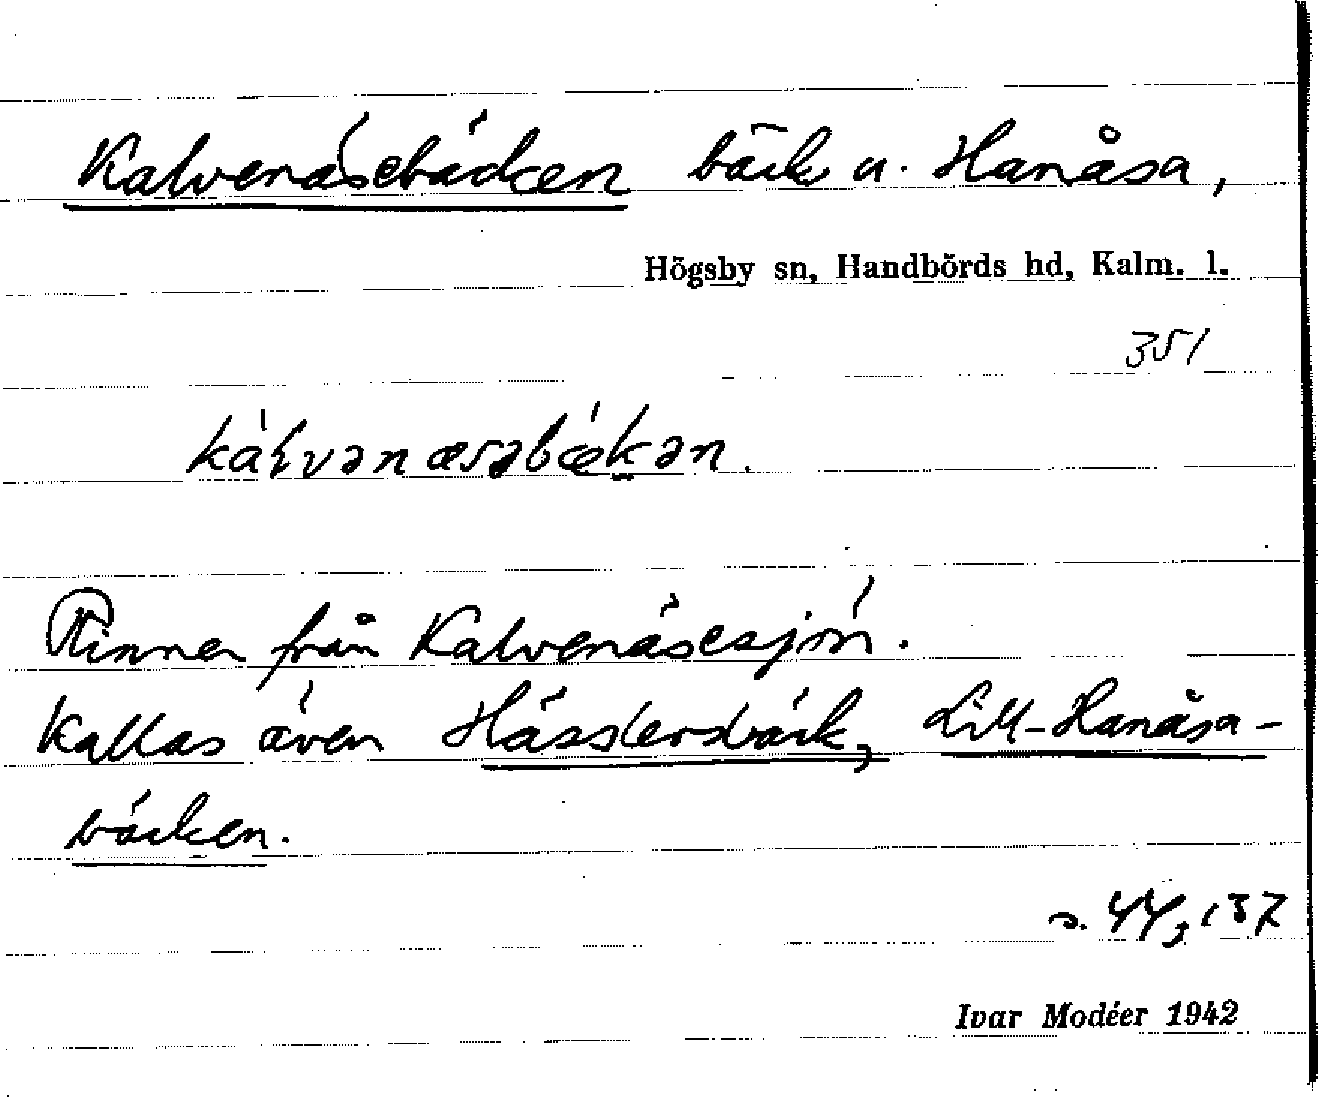 Kalvenäsebäcken bäck u. Hanåsa,
Högsby sn, Handbörds hd, Kalm. l.
351
Rinner från Kalvenäsesjön.
Kallas även Hässlersbäck, Lill-Hanåsa-
bäcken.
s. 44, 137
Ivar Modéer 1942